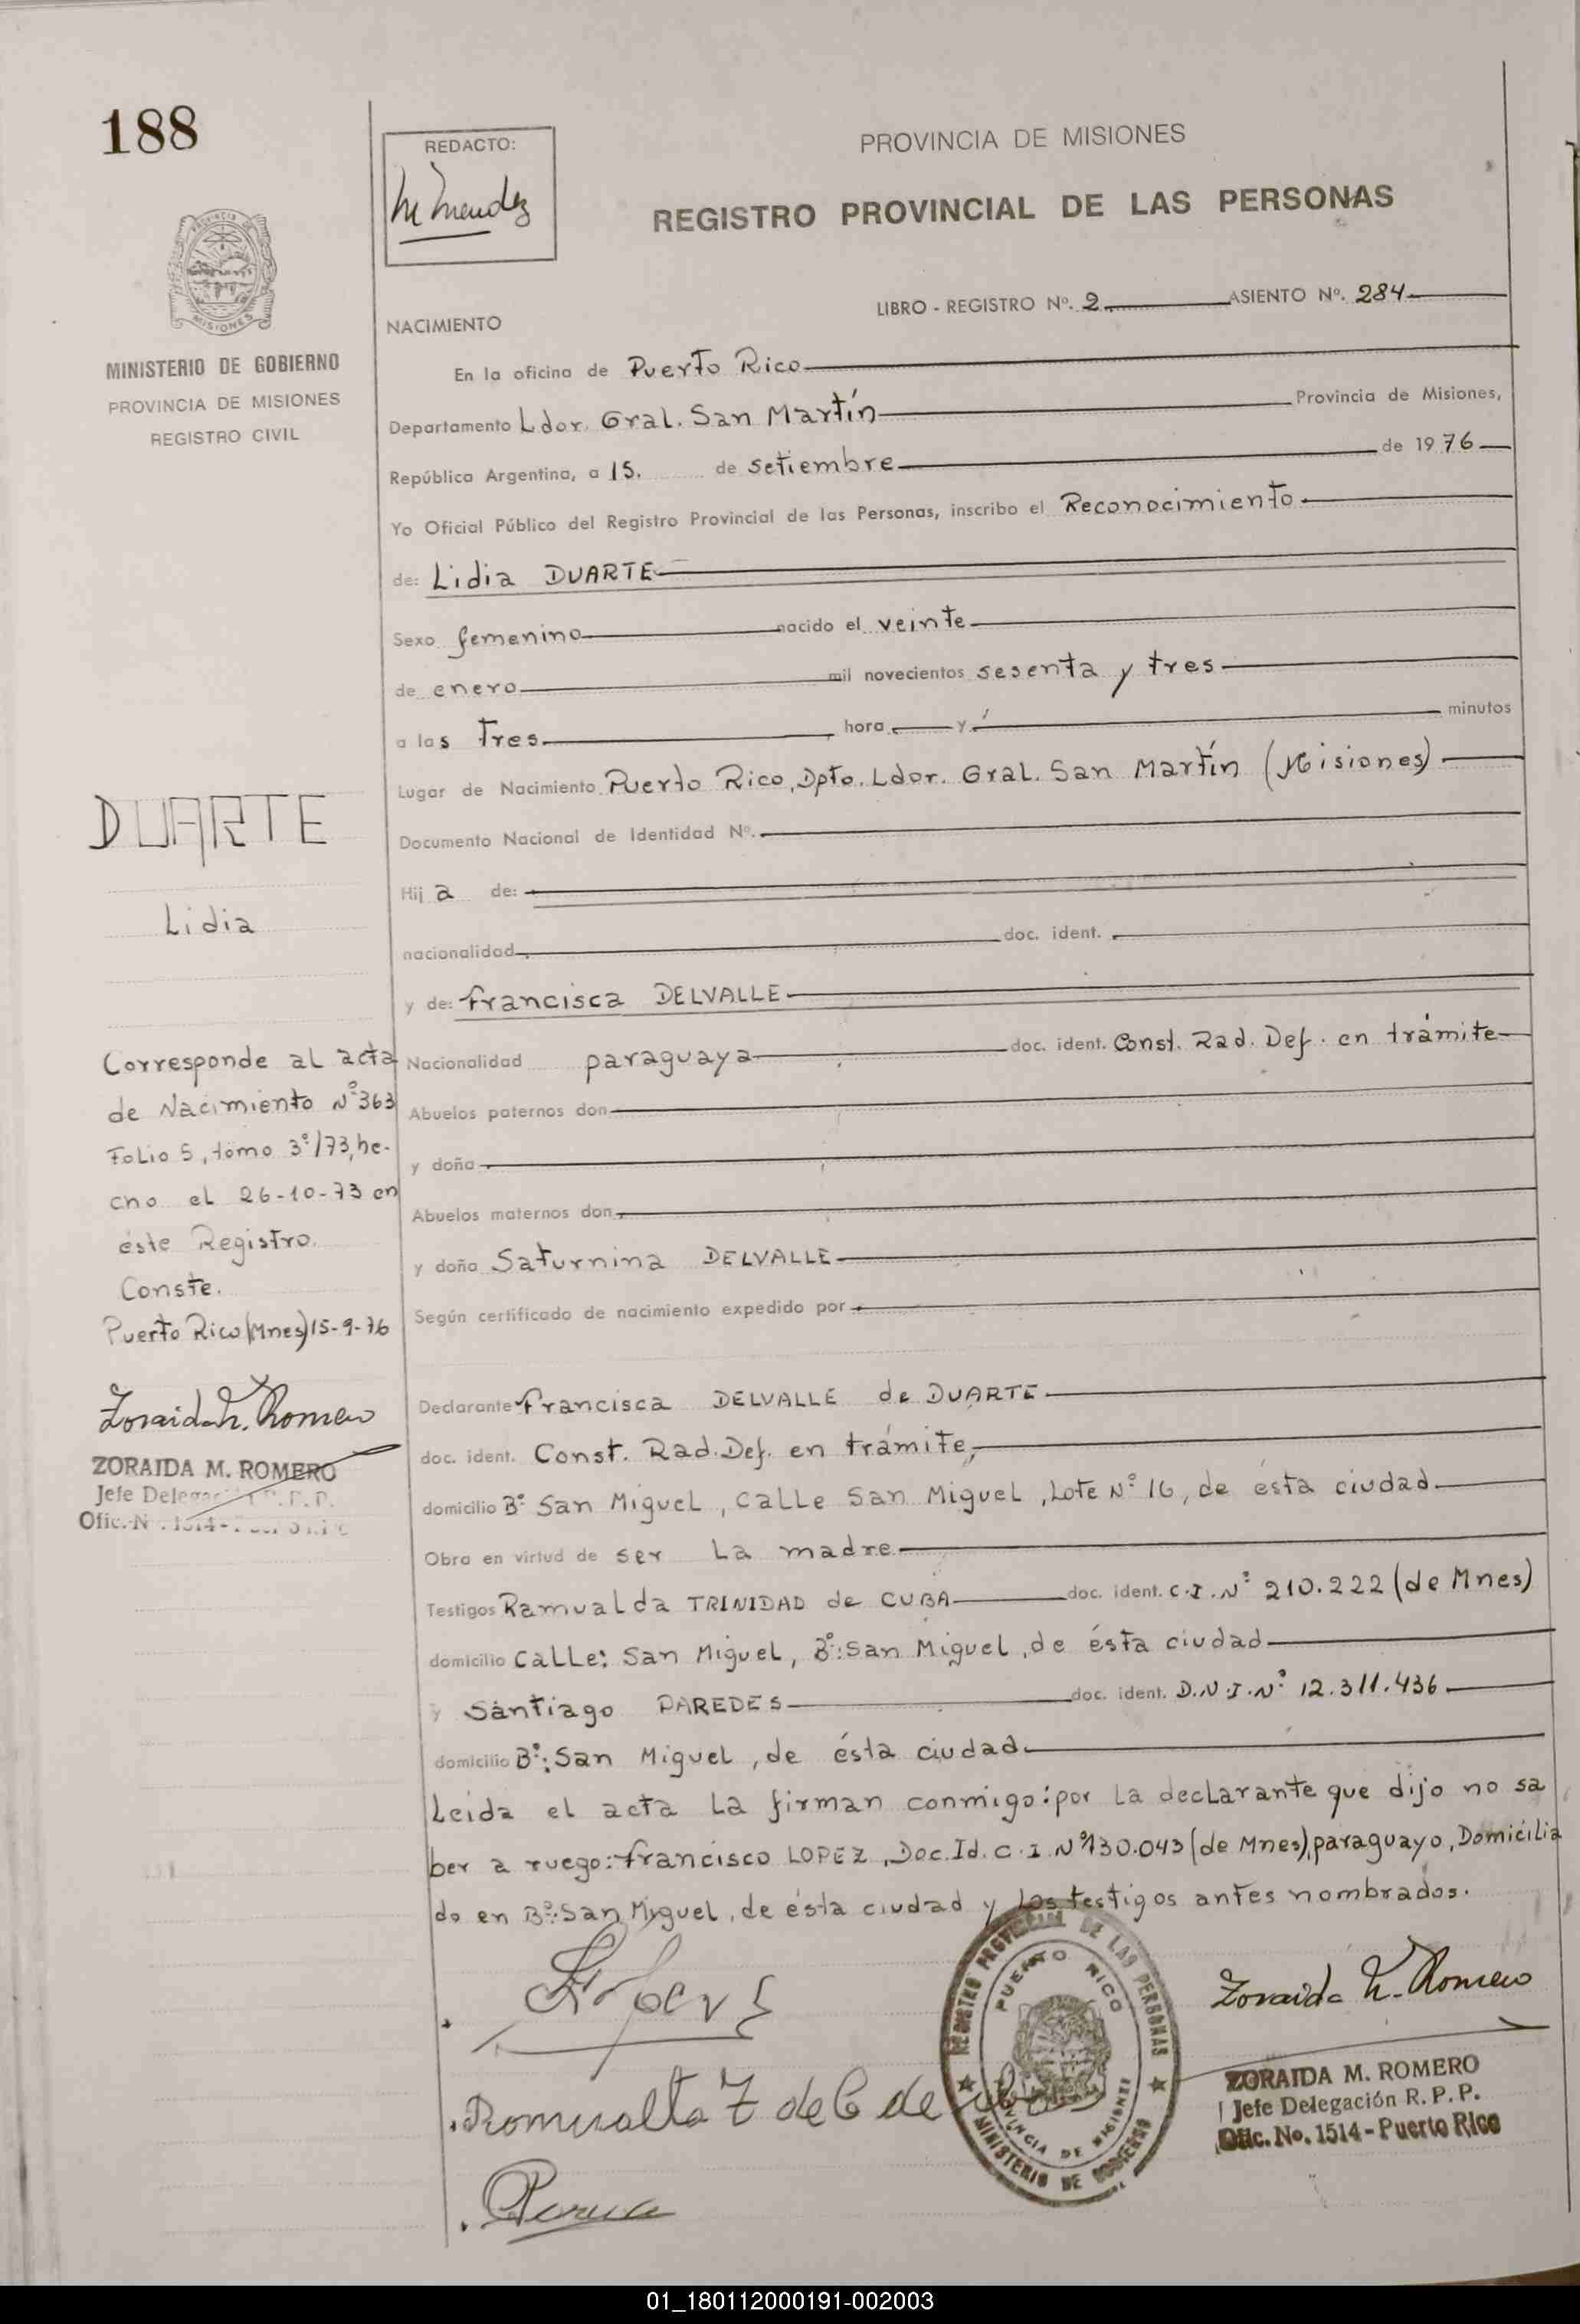 188
REDACTO:
M Mendez
PROVINCIA DE MISIONES
REGISTRO PROVINCIAL DE LAS PERSONAS
PROVINCIA
MISIONES
MINISTERIO DE GOBIERNO
PROVINCIA DE MISIONES
REGISTRO CIVIL
LIBRO - REGISTRO Nº. 2 ASIENTO Nº. 284
NACIMIENTO
En la oficina de Puerto Rico
Departamento Ldor. Gral. San Martín Provincia de Misiones,
República Argentina, a 15. de setiembre de 1976
Yo Oficial Público del Registro Provincial de las Personas, inscribo el Reconocimiento
de: Lidia DUARTE
Sexo femenino nacido el veinte
de enero mil novecientos sesenta y tres
a las tres hora y minutos
Lugar de Nacimiento Puerto Rico, Dpto. Ldor. Gral. San Martín (Misiones)
Documento Nacional de Identidad Nº.
Hija de:
nacionalidad doc. ident.
y de: Francisca DELVALLE
Nacionalidad paraguaya doc. ident. Const. Rad. Def. en trámite
Abuelos paternos don
y doña
Abuelos maternos don
y doña Saturnina DELVALLE
Según certificado de nacimiento expedido por
Declarante Francisca DELVALLE de DUARTE
doc. ident. Const. Rad. Def. en trámite,
domicilio Bº San Miguel, calle San Miguel, Lote Nº 16, de ésta ciudad
Obra en virtud de ser la madre
Testigos Ramualda TRINIDAD de CUBA doc. ident. C.I.Nº 210.222 (de Mnes)
domicilio Calle: San Miguel, Bº: San Miguel, de ésta ciudad
y Santiago PAREDES doc. ident. D.N.I.Nº 12.311.436
domicilio Bº: San Miguel, de ésta ciudad
Leida el acta la firman conmigo: por la declarante que dijo no sa
ber a ruego: Francisco LOPEZ, Doc. Id. C.I. Nº 130.043 (de Mnes), paraguayo, Domicilia
do en Bº: San Miguel, de ésta ciudad y los testigos antes nombrados.
DUARTE
Lidia
Corresponde al acta
de Nacimiento Nº 363
Folio 5, tomo 3º/73, he-
cho el 26-10-73 en
éste Registro.
Conste.
Puerto Rico (Mnes) 15-9-76
Zoraida M. Romero
ZORAIDA M. ROMERO
Jefe Delegac R. P. P.
Ofic. N . 1514 -
REGISTRO PROVINCIAL DE LAS PERSONAS
PUERTO RICO
PROVINCIA DE MISIONES
MINISTERIO DE GOBIERNO
Zoraida M. Romero
ZORAIDA M. ROMERO
Jefe Delegación R. P. P.
Ofic. No. 1514 - Puerto Rico
Romualta T de C de
01_180112000191-002003